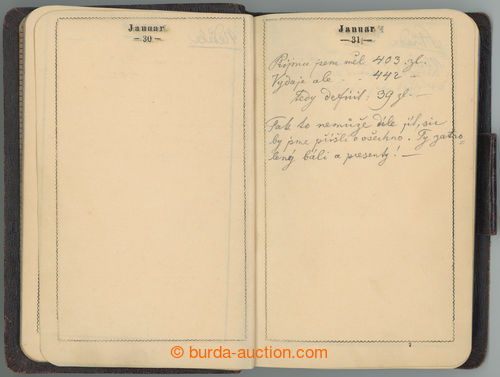 Januar
— 30 —
Januar
— 31 —
Příjmu jsem měl 403 zl.
Vydaje ale . . . 442 —
Tedy deficit: 39 zl. —
Tak to nemůže dále jít, sic
by jsme přišli o všechno. Ty zatro-
lený báli a presenty! —
© burda-auction.com